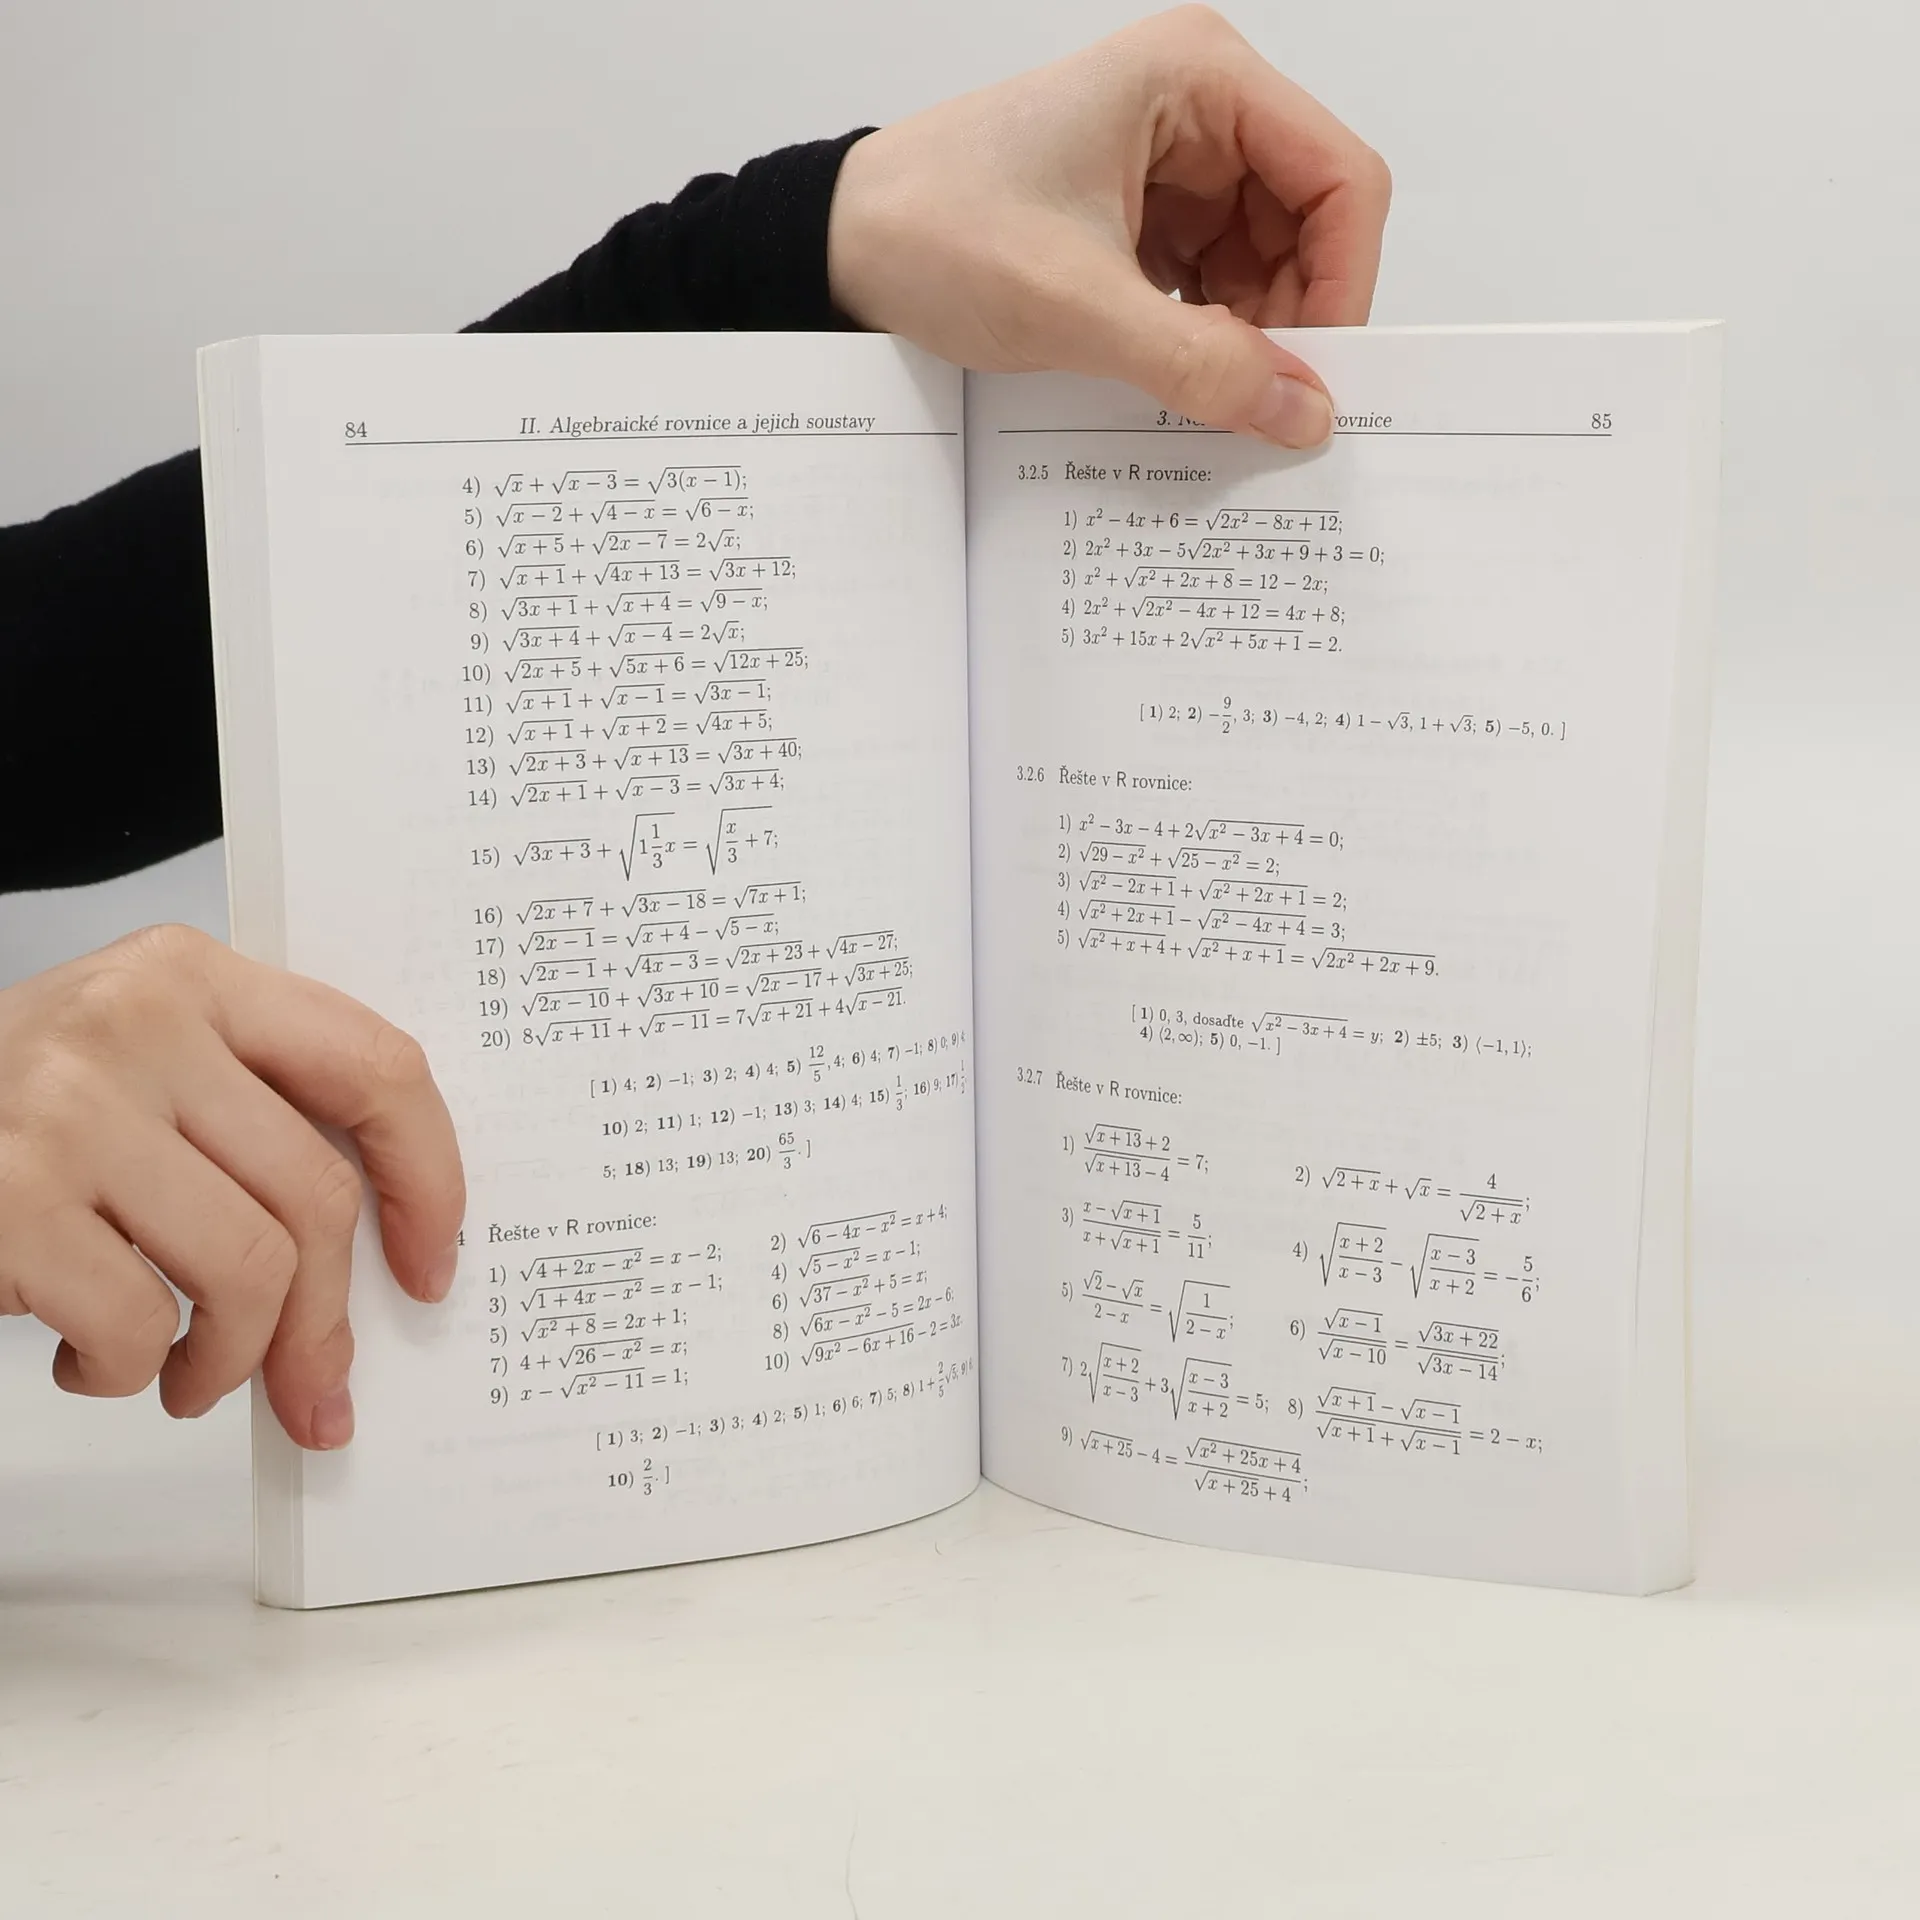 84 II. Algebraické rovnice a jejich soustavy
4) √x + √(x − 3) = √(3(x − 1));
5) √(x − 2) + √(4 − x) = √(6 − x);
6) √(x + 5) + √(2x − 7) = 2√x;
7) √(x + 1) + √(4x + 13) = √(3x + 12);
8) √(3x + 1) + √(x + 4) = √(9 − x);
9) √(3x + 4) + √(x − 4) = 2√x;
10) √(2x + 5) + √(5x + 6) = √(12x + 25);
11) √(x + 1) + √(x − 1) = √(3x − 1);
12) √(x + 1) + √(x + 2) = √(4x + 5);
13) √(2x + 3) + √(x + 13) = √(3x + 40);
14) √(2x + 1) + √(x − 3) = √(3x + 4);
15) √(3x + 3) + √(1 1/3 x) = √(x/3 + 7);
16) √(2x + 7) + √(3x − 18) = √(7x + 1);
17) √(2x − 1) = √(x + 4) − √(5 − x);
18) √(2x − 1) + √(4x − 3) = √(2x + 23) + √(4x − 27);
19) √(2x − 10) + √(3x + 10) = √(2x − 17) + √(3x + 25);
20) 8√(x + 11) + √(x − 11) = 7√(x + 21) + 4√(x − 21).
[ 1) 4; 2) −1; 3) 2; 4) 4; 5) 12/5, 4; 6) 4; 7) −1; 8) 0; 9)
10) 2; 11) 1; 12) −1; 13) 3; 14) 4; 15) 1/3; 16) 9; 17)
5; 18) 13; 19) 13; 20) 65/3. ]
4 Řešte v R rovnice:
1) √(4 + 2x − x²) = x − 2; 2) √(6 − 4x − x²) = x + 4;
3) √(1 + 4x − x²) = x − 1; 4) √(5 − x²) = x − 1;
5) √(x² + 8) = 2x + 1; 6) √(37 − x²) + 5 = x;
7) 4 + √(26 − x²) = x; 8) √(6x − x²) − 5 = 2x − 6;
9) x − √(x² − 11) = 1; 10) √(9x² − 6x + 16) − 2 = 3x.
[ 1) 3; 2) −1; 3) 3; 4) 2; 5) 1; 6) 6; 7) 5; 8) 1 + 2/5 √5; 9)
10) 2/3. ]
3. rovnice 85
3.2.5 Řešte v R rovnice:
1) x² − 4x + 6 = √(2x² − 8x + 12);
2) 2x² + 3x − 5√(2x² + 3x + 9) + 3 = 0;
3) x² + √(x² + 2x + 8) = 12 − 2x;
4) 2x² + √(2x² − 4x + 12) = 4x + 8;
5) 3x² + 15x + 2√(x² + 5x + 1) = 2.
[ 1) 2; 2) −9/2, 3; 3) −4, 2; 4) 1 − √3, 1 + √3; 5) −5, 0. ]
3.2.6 Řešte v R rovnice:
1) x² − 3x − 4 + 2√(x² − 3x + 4) = 0;
2) √(29 − x²) + √(25 − x²) = 2;
3) √(x² − 2x + 1) + √(x² + 2x + 1) = 2;
4) √(x² + 2x + 1) − √(x² − 4x + 4) = 3;
5) √(x² + x + 4) + √(x² + x + 1) = √(2x² + 2x + 9).
[ 1) 0, 3, dosaďte √(x² − 3x + 4) = y; 2) ±5; 3) ⟨−1, 1⟩;
4) ⟨2, ∞); 5) 0, −1. ]
3.2.7 Řešte v R rovnice:
1) (√(x + 13) + 2)/(√(x + 13) − 4) = 7; 2) √(2 + x) + √x = 4/√(2 + x);
3) (x − √(x + 1))/(x + √(x + 1)) = 5/11; 4) √((x + 2)/(x − 3)) − √((x − 3)/(x + 2)) = −5/6;
5) (√2 − √x)/(2 − x) = √(1/(2 − x)); 6) √(x − 1)/√(x − 10) = √(3x + 22)/√(3x − 14);
7) 2√((x + 2)/(x − 3)) + 3√((x − 3)/(x + 2)) = 5; 8) (√(x + 1) − √(x − 1))/(√(x + 1) + √(x − 1)) = 2 − x;
9) √(x + 25) − 4 = √(x² + 25x + 4)/(√(x + 25) + 4);